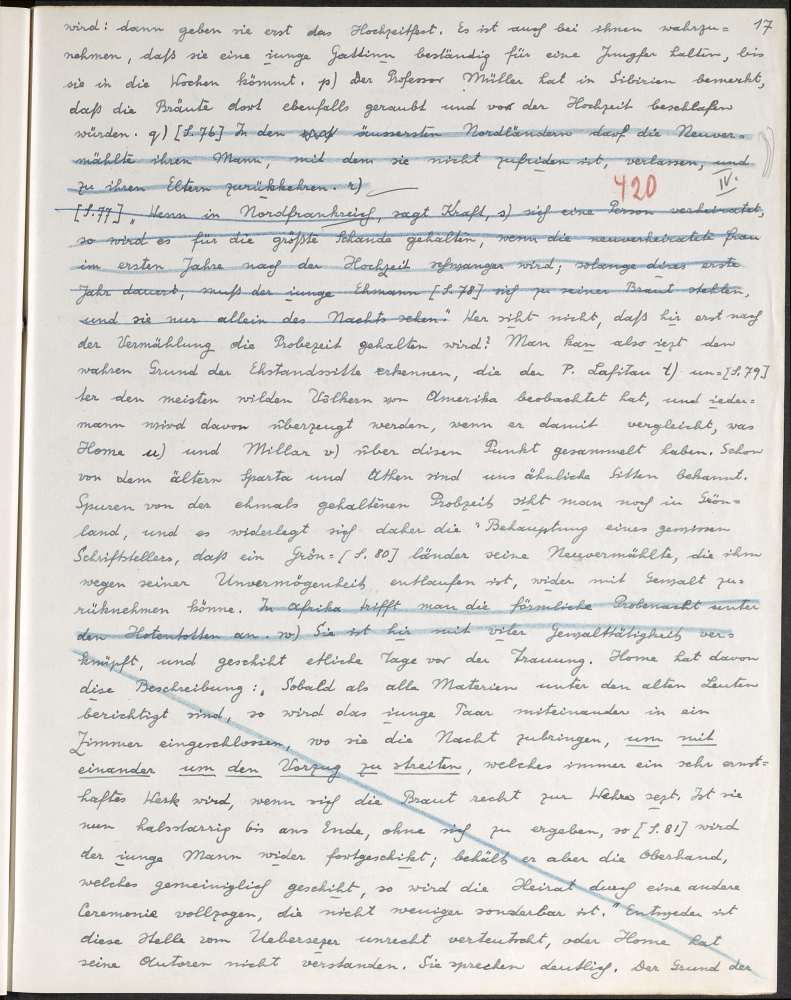 17
wird: dann geben sie erst das Hochzeitfest. Es ist auch bei ihnen wahrzu=
nehmen, daß sie eine iunge Gattinn beständig für eine Jungfer halten, bis
sie in die Wochen kömmt. p) Der Professor Müller hat in Sibirien bemerkt,
daß die Bräute dort ebenfalls geraubt und vor der Hochzeit beschlafen
würden. q) [S.76] In den äussersten Nordländern darf die Neuver=
mählte ihren Mann, mit dem sie nicht zufriden ist, verlassen, und
zu ihren Eltern zurükkehren. r)
420 IV.
[S.77] „Wenn in Nordfrankreich, sagt Kraft, s) sich eine Person verheiratet,
so wird es für die größte Schande gehalten, wenn die neuverheiratete Frau
im ersten Jahre nach der Hochzeit schwanger wird; solange dises erste
Jahr dauert, muß der iunge Ehmann [S.78] sich zu seiner Braut stehlen,
und sie nur allein des Nachts sehen." Wer siht nicht, daß hir erst nach
der Vermählung die Probezeit gehalten wird? Man kan also iezt den
wahren Grund der Ehstandssitte erkennen, die der P. Lafitau t) un=[S.79]
ter den meisten wilden Völkern von Amerika beobachtet hat, und ieder=
mann wird davon überzeugt werden, wenn er damit vergleicht, was
Home u) und Millar v) über disen Punkt gesammelt haben. Schon
von dem ältern Sparta und Athen sind uns ähnliche Sitten bekannt.
Spuren von der ehmals gehaltenen Probzeit siht man noch in Grön=
land, und es widerlegt sich daher die Behauptung eines gewissen
Schriftstellers, daß ein Grön=[S.80] länder seine Neuvermählte, die ihm
wegen seiner Unvermögenheit entlaufen ist, wider mit Gewalt zu=
rüknehmen könne. In Afrika trifft man die förmliche Probenacht unter
den Hotentotten an. w) Sie ist hir mit viler Gewalttätigkeit ver=
knüpft, und geschiht etliche Tage vor der Trauung. Home hat davon
dise Beschreibung: „Sobald als alle Materien unter den alten Leuten
berichtigt sind, so wird das iunge Paar miteinander in ein
Zimmer eingeschlossen, wo sie die Nacht zubringen, um mit
einander um den Vorzug zu streiten, welches immer ein sehr ernst=
haftes Werk wird, wenn sich die Braut recht zur Wehre sezt. Ist sie
nun halsstarrig bis ans Ende, ohne sich zu ergeben, so [S.81] wird
der iunge Mann wider fortgeschikt; behält er aber die Oberhand,
welches gemeiniglich geschiht, so wird die Heirat durch eine andere
Ceremonie vollzogen, die nicht weniger sonderbar ist." Entweder ist
diese Stelle vom Uebersezer unrecht verteutscht, oder Home hat
seine Autoren nicht verstanden. Sie sprechen deutlich. Der Grund der